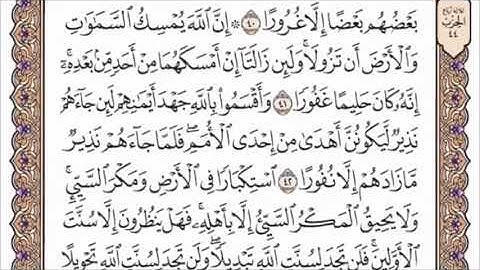 الحزب
٤٤
بَعۡضُهُم بَعۡضًا إِلَّا غُرُورًا ٤٠ ۞ إِنَّ ٱللَّهَ يُمۡسِكُ ٱلسَّمَٰوَٰتِ
وَٱلۡأَرۡضَ أَن تَزُولَاۚ وَلَئِن زَالَتَآ إِنۡ أَمۡسَكَهُمَا مِنۡ أَحَدٖ مِّنۢ بَعۡدِهِۦٓۚ
إِنَّهُۥ كَانَ حَلِيمًا غَفُورٗا ٤١ وَأَقۡسَمُواْ بِٱللَّهِ جَهۡدَ أَيۡمَٰنِهِمۡ لَئِن جَآءَهُمۡ
نَذِيرٞ لَّيَكُونُنَّ أَهۡدَىٰ مِنۡ إِحۡدَى ٱلۡأُمَمِۖ فَلَمَّا جَآءَهُمۡ نَذِيرٞ
مَّا زَادَهُمۡ إِلَّا نُفُورًا ٤٢ ٱسۡتِكۡبَارٗا فِي ٱلۡأَرۡضِ وَمَكۡرَ ٱلسَّيِّيِٕۚ
وَلَا يَحِيقُ ٱلۡمَكۡرُ ٱلسَّيِّئُ إِلَّا بِأَهۡلِهِۦۚ فَهَلۡ يَنظُرُونَ إِلَّا سُنَّتَ
ٱلۡأَوَّلِينَۚ فَلَن تَجِدَ لِسُنَّتِ ٱللَّهِ تَبۡدِيلٗاۖ وَلَن تَجِدَ لِسُنَّتِ ٱللَّهِ تَحۡوِيلًا